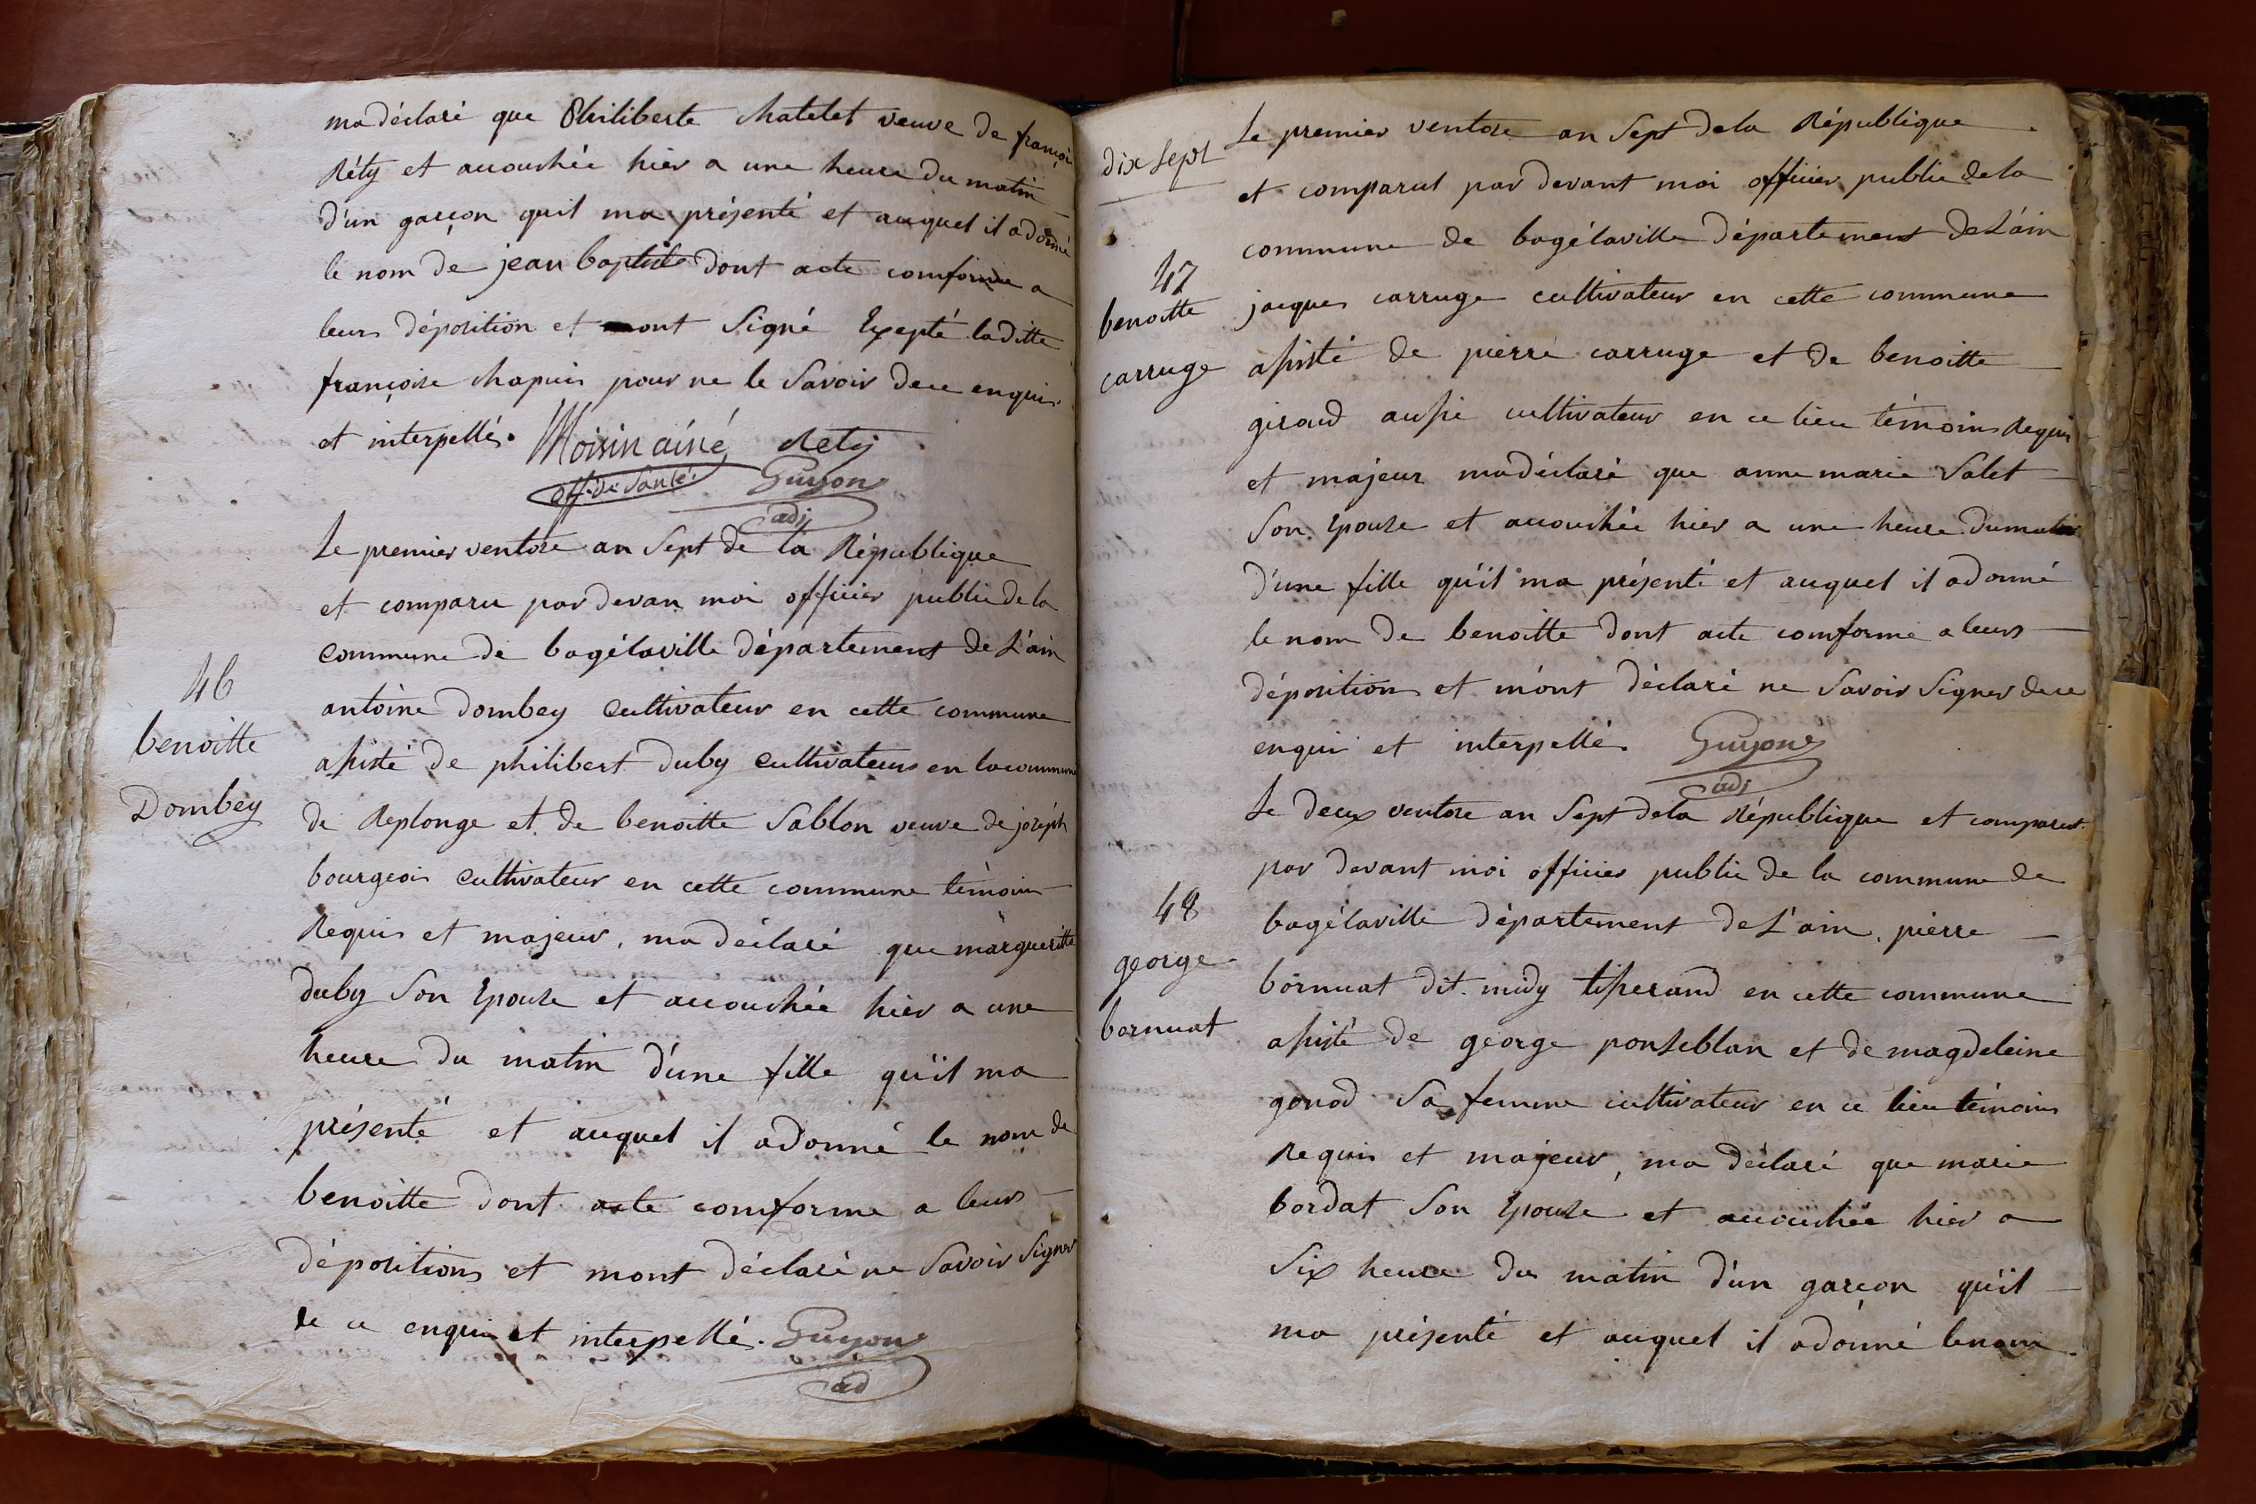 ma déclaré que Philiberte chatelet veuve de françoi
Réty et accouchée hier a une heure du matin
d'un garçon quil ma présenté et auquel il a donné
le nom de jean baptiste dont acte comforme a
leurs déposition et mont Signé Exepté laditte
françoise chapuis pour ne le Savoir dece enquis
et interpellés. Moisin ainé Rety
off. de Santé. Guyon
adj
Le premier ventose an Sept de la République
et comparu par devan moi officier public de la
commune de bagélaville département de L'ain
46
antoine Dombey Cultivateur en cette commune
benoitte
assisté de philibert duby Cultivateurs en la commune
Dombey
de Replonge et de benoitte Sablon veuve de joséph
bourgeois Cultivateur en cette commune témoins
Requis et majeur, ma déclaré que margueritte
duby Son Epouse et accouchée hier a une
heure du matin d'une fille qu'il ma
présenté et auquel il a donné le nom de
benoitte dont acte comforme a leurs
dépositions et mont déclaré ne Savoir Signer
de ce enquis et interpellé. Guyon
ad
dix Sept
Le premier ventose an Sept dela République
et comparut par devant moi officier public dela
commune de bagélaville département de L'ain
47
jacques carruge cultivateur en cette commune
benoitte
assisté de pierre carruge et de benoitte
carruge
giroud aussi cultivateur en ce lieu témoins Requis
et majeur ma déclaré que anne marie Salet
Son Epouse et accouchée hier a une heure du matin
d'une fille qu'il ma présenté et auquel il a donné
le nom de benoitte dont acte comforme a leurs
déposition et m'ont déclaré ne Savoir Signer dece
enqui et interpellé. Guyon
adj
Le deux ventose an Sept dela République et comparut
par devant moi officier public de la commune de
48
bagélaville département de L'ain, pierre
george
bornuat dit midy tisserand en cette commune
bornuat
assisté de george ponseblan et de magdeleine
gonod Sa femme cultivateur en ce lieu témoins
Requis et majeur, ma déclaré que marie
bordat Son Epouse et accouchée hier a
Six heure du matin d'un garcon qu'il
ma présenté et auquel il a donné le nom